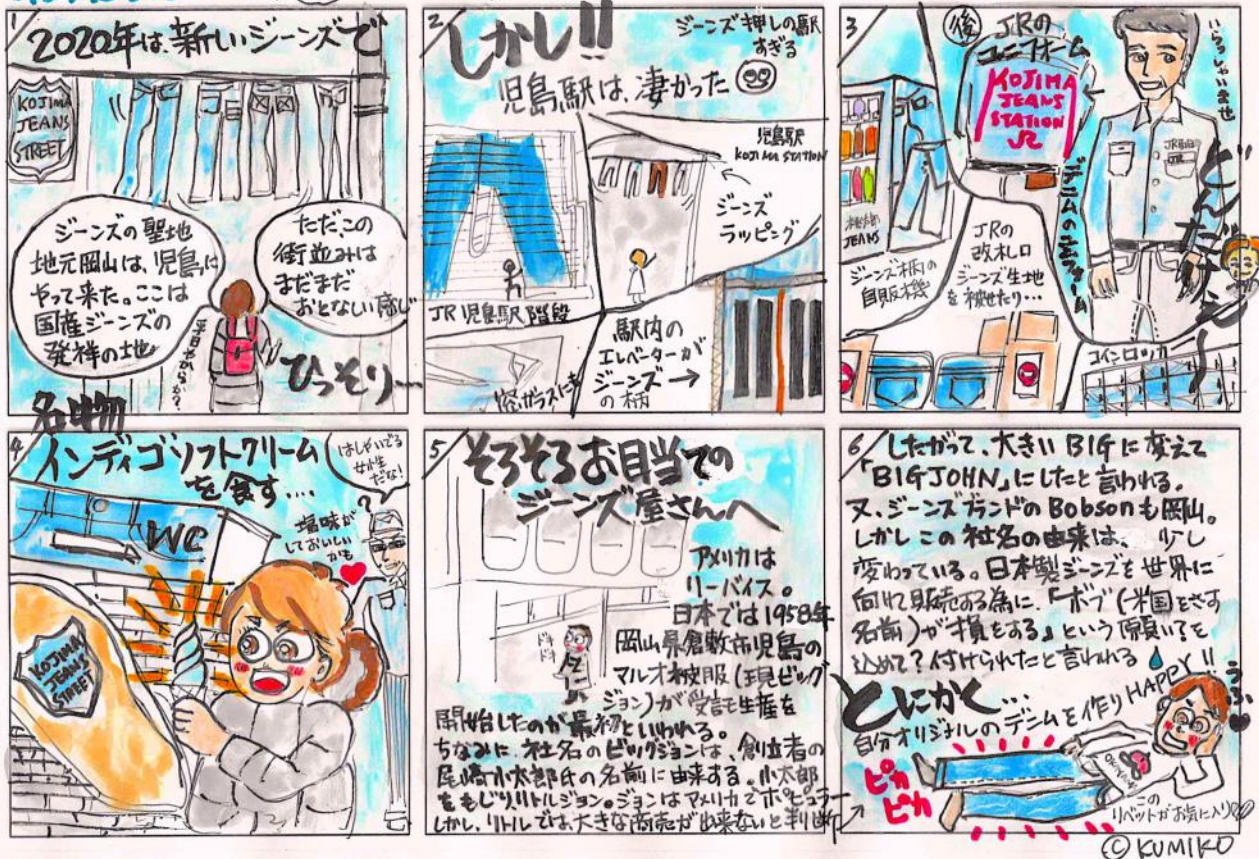 1
2020年は、新しいジーンズで
KOJIMA
JEANS
STREET
ジーンズの聖地
地元岡山は、児島に
やって来た。ここは
国産ジーンズの
発祥の地
ただ、この
街並みは
まだまだ
おとなしい感じ
平日やからか?
ひっそりー
2
しかし!!
ジーンズ押しの駅
すぎる
児島駅は、凄かった
児島駅
KOJIMA STATION
ジーンズ
ラッピング
JR児島駅階段
窓ガラスにも
駅内の
エレベーターが
ジーンズ
の柄
3
後
JRの
ユニフォーム
KOJIMA
JEANS
STATION
いらっしゃいませ
JR
どんだけぇー
JEANS
ジーンズ柄の
自販機
JRの
改札口
ジーンズ生地
を被せたり…
コインロッカー
4
名物
インディゴソフトクリーム
を食す....
はしゃいでる
女性
だな!
WC
塩味が
しておいしい
かも
KOJIMA
JEANS
STREET
5
そろそろお目当ての
ジーンズ屋さんへ
アメリカは
リーバイス。
日本では1958年
岡山県倉敷市児島の
マルオ被服(現ビッグ
ジョン)が受託生産を
開始したのが最初といわれる。
ちなみに社名のビッグジョンは、創立者の
尾崎小太郎氏の名前に由来する。小太郎
をもじりリトルジョン。ジョンはアメリカでポピュラー
しかし、リトルでは、大きな商売が出来ないと判断
ドキ
ドキ
6
したがって、大きいBIGに変えて
「BIG JOHN」にしたと言われる。
又、ジーンズブランドのBobsonも岡山。
しかしこの社名の由来は、少し
変わっている。日本製ジーンズを世界に
向けて販売する為に、「ボブ(米国をさす
名前)が損をする」という願いを
込めて?付けられたと言われる
とにかく…
自分オリジナルのデニムを作りHAPPY!!
うふふ
ピカ
ピカ
この
リベットがお気に入り
© KUMIKO